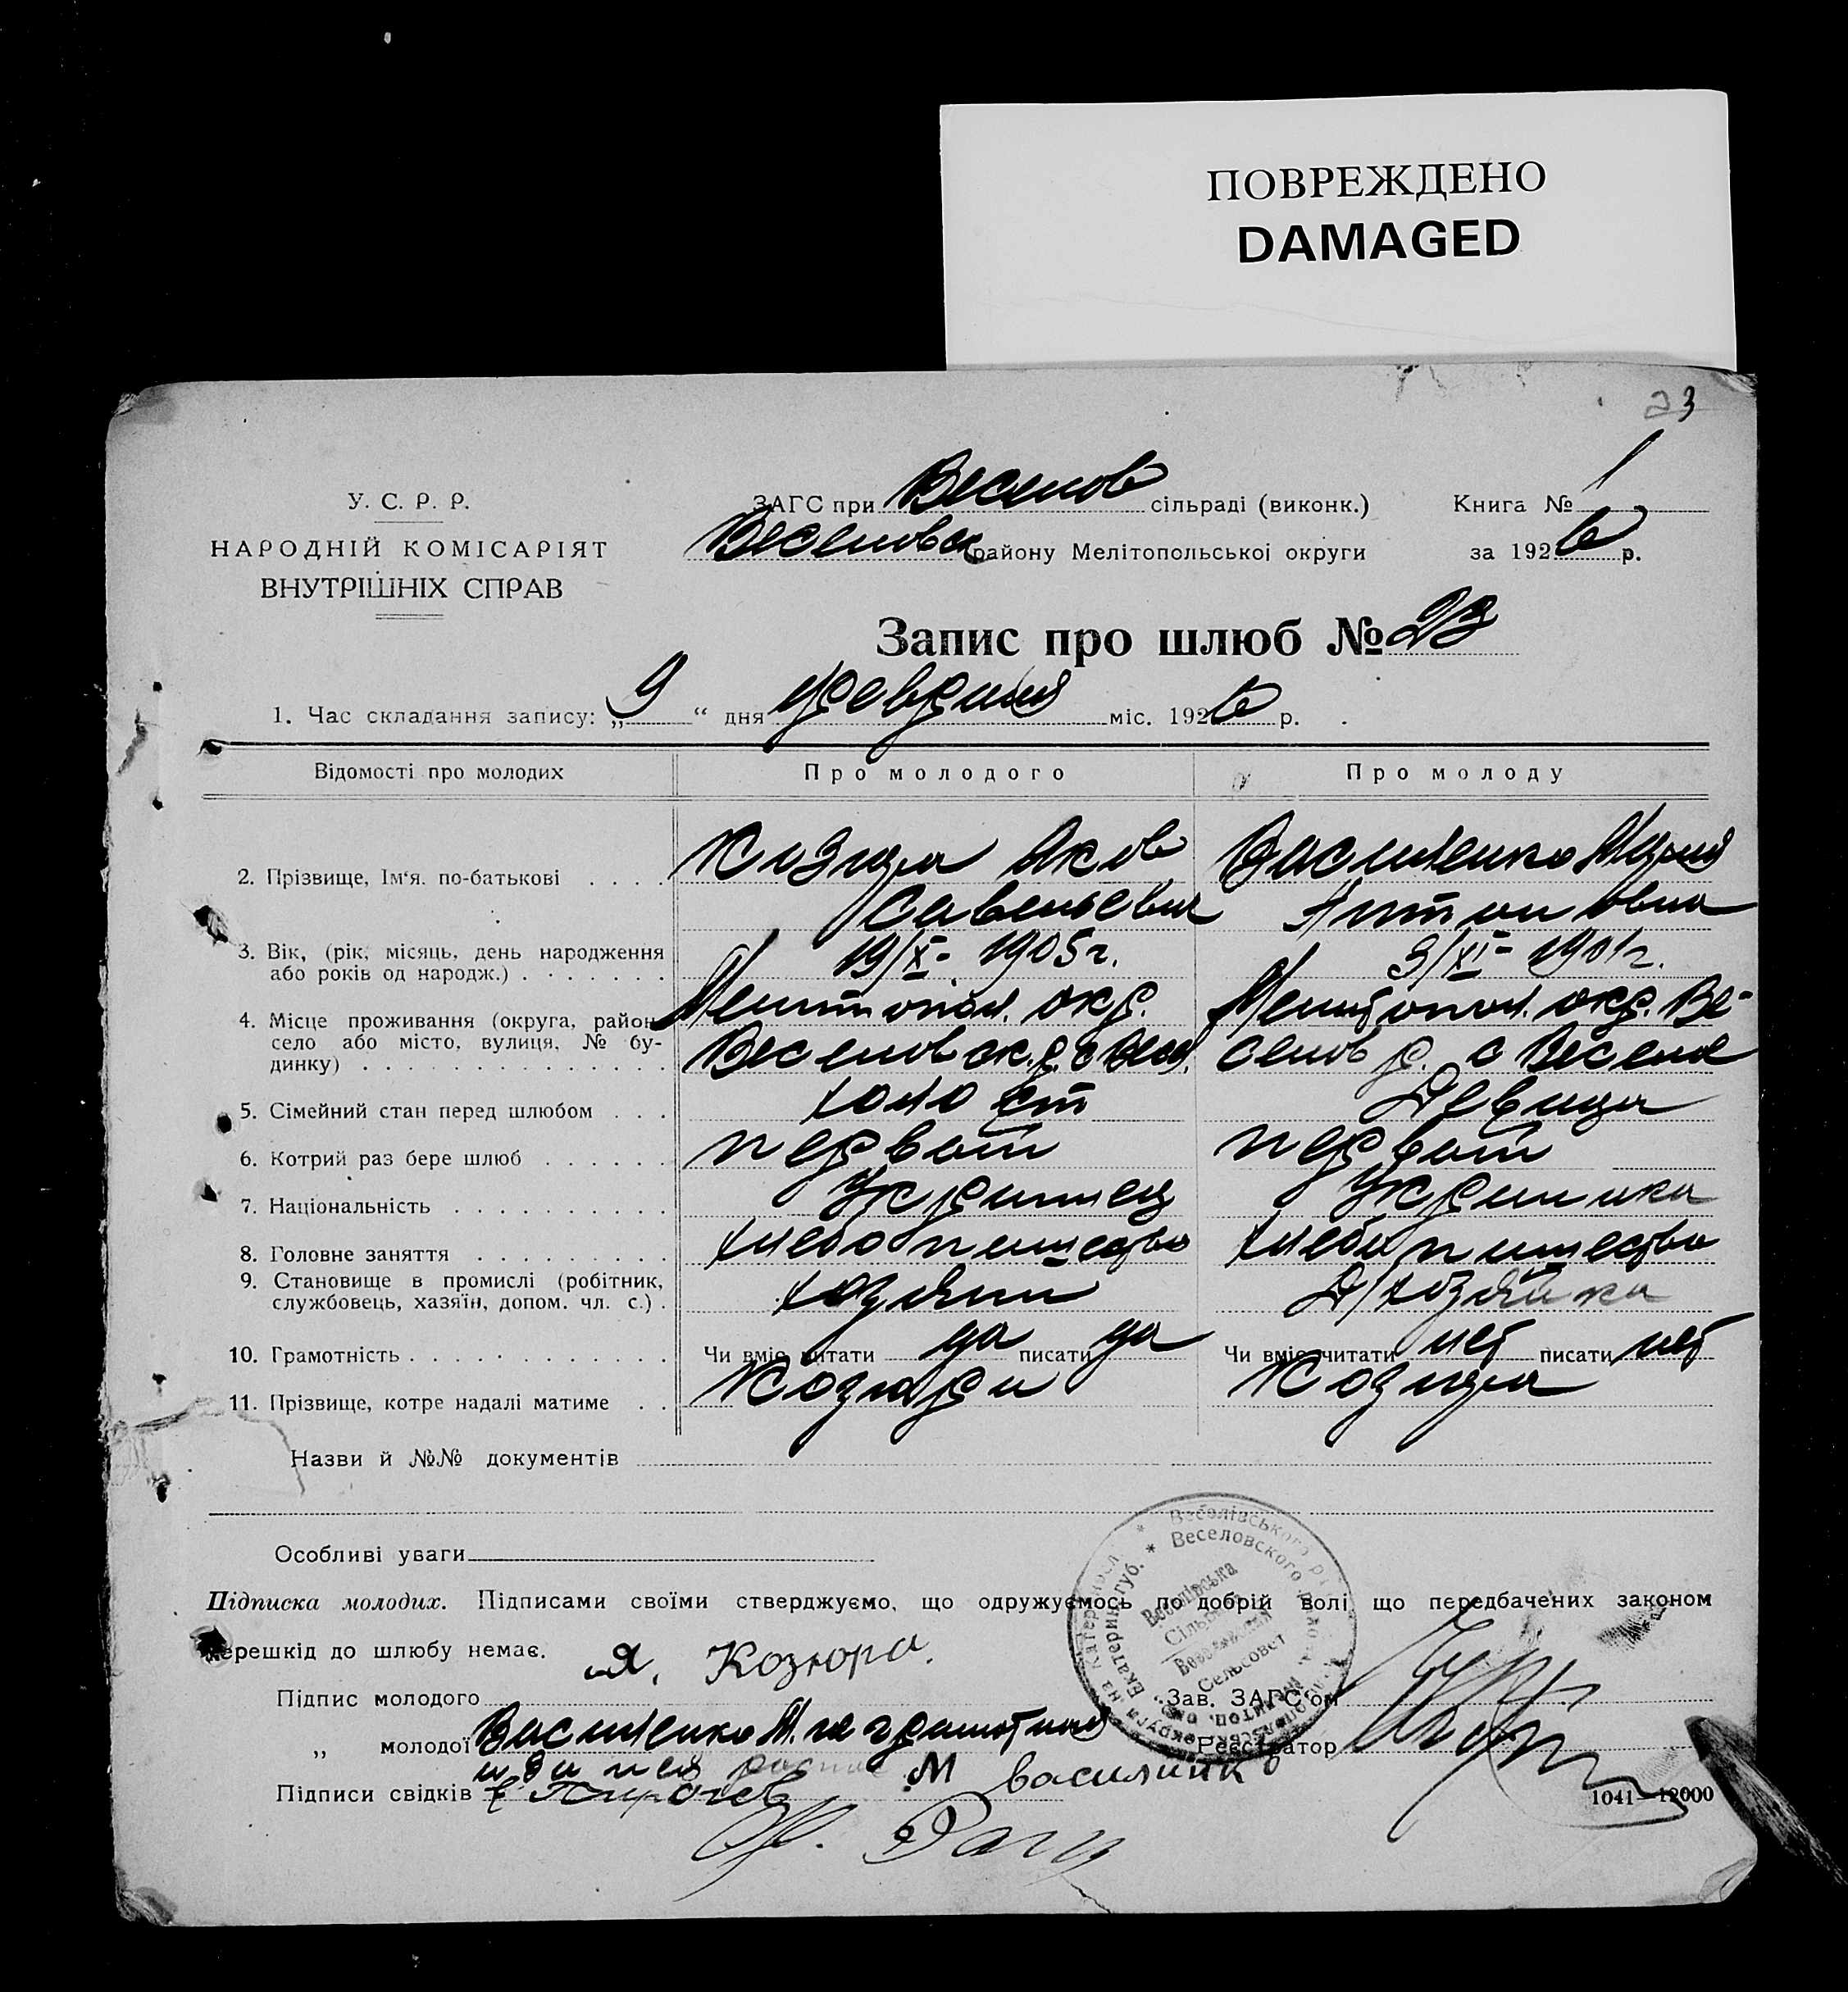 ПОВРЕЖДЕНО
DAMAGED
23
У. С. Р. Р.
НАРОДНІЙ КОМІСАРІЯТ
ВНУТРІШНІХ СПРАВ
ЗАГС при Веселов сільраді (виконк.) Книга № 1
Веселовск району Мелітопольської округи за 1926 р.
Запис про шлюб № 23
1. Час складання запису: „9“ дня февраля міс. 1926 р.
Відомості про молодих Про молодого Про молоду
2. Прізвище, Ім'я. по-батькові . . . . Козюра Яков Василенко Мария
Савельевич Антоновна
3. Вік, (рік, місяць, день народження 19/X- 1905 г. 3/XI- 1901 г.
або років од народж.) . . . . . . .
4. Місце проживання (округа, район, Мелитопол. окр. Мелитопол. окр. Ве-
село або місто, вулиця, № бу- Веселовск. р. с Весел. селов р. с Веселое
динку) . . . . . . . . . . . . . .
5. Сімейний стан перед шлюбом . . . холост Девица
6. Котрий раз бере шлюб . . . . . . первый первый
7. Національність . . . . . . . . . . Украинец Украинка
8. Головне заняття . . . . . . . . . хлебопашество хлебопашество
9. Становище в промислі (робітник, хозяин Д/хозяйка
службовець, хазяїн, допом. чл. с.) .
10. Грамотність . . . . . . . . . . . . Чи вміє читати да писати да Чи вміє читати нет писати нет
11. Прізвище, котре надалі матиме . . Козюра Козюра
Назви й №№ документів
Особливі уваги
Підписка молодих. Підписами своїми стверджуємо, що одружуємось по добрій волі, що передбачених законом
перешкід до шлюбу немає.
Підпис молодого Я. Козюра. Зав. ЗАГС'ом
„ молодої Василенко М. неграмотная Реєстратор
за нея
Підписи свідків М василинк
1041—12000
Веселівського
Веселовского
Екатерин. губ.
Веселівська
Сільрада
Веселовский
Сельсовет